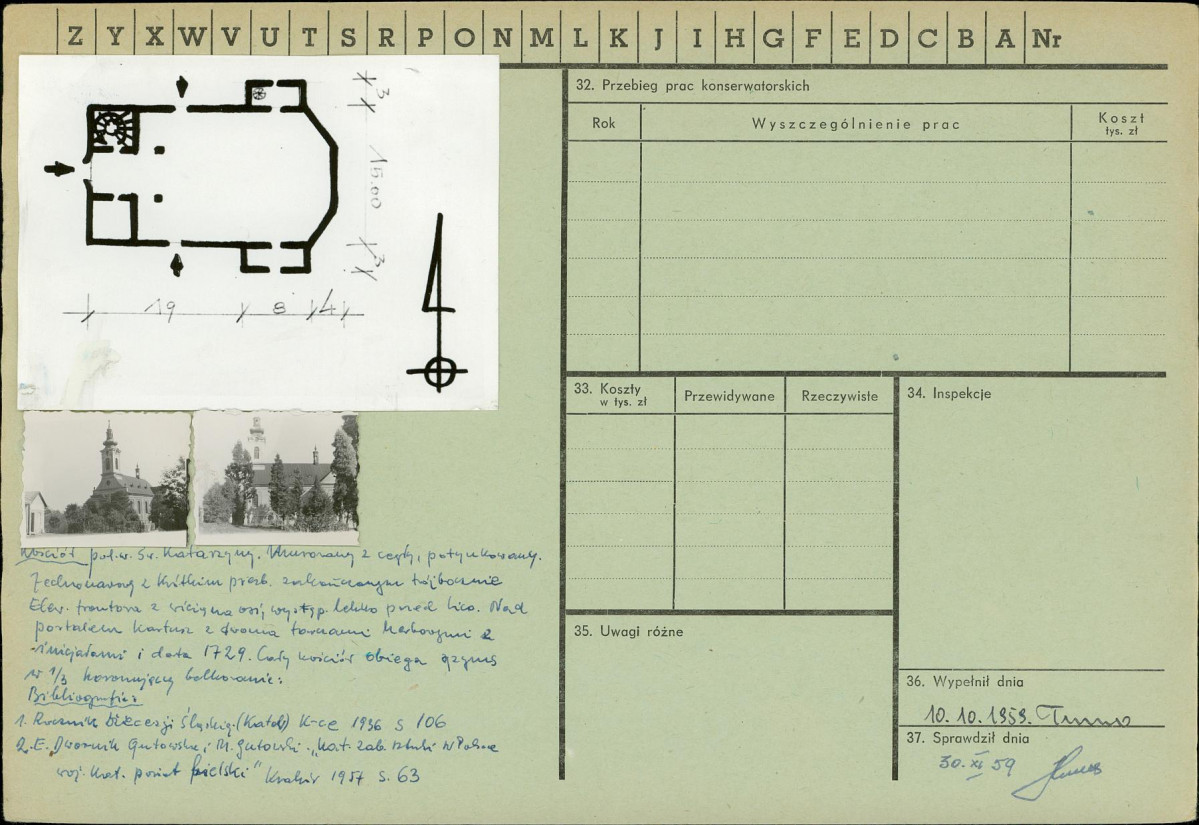 Z Y X W V U T S R P O N M L K J I H G F E D C B A Nr
3
15.00
3
19 8 4
Kościół pol.w. Św. Katarzyny. Murowany z cegły, potynkowany.
Jednonawowy z krótkim prezb. zakończonym trójbocznie
Elew. frontowa z wieżą na osi, występ. lekko przed lico. Nad
portalem kartusz z dwoma tarczami herbowymi z
inicjałami i data 1729. Cały kościół obiega gzyms
w 1/3 koronujący belkowanie:
Bibliografia:
1. Rocznik diecezji śląskiej (Katol) K-ce 1936 s 106
2. E. Dwornik Gutowska, M. Gutowski "Kat. zab. sztuki w Polsce
woj. Kat. powiat bielski" Kraków 1957 s. 63
32. Przebieg prac konserwatorskich
Rok Wyszczególnienie prac Koszt
tys. zł
33. Koszty
w tys. zł
Przewidywane Rzeczywiste
34. Inspekcje
35. Uwagi różne
36. Wypełnił dnia
10.10.1959.
37. Sprawdził dnia
30.XI 59